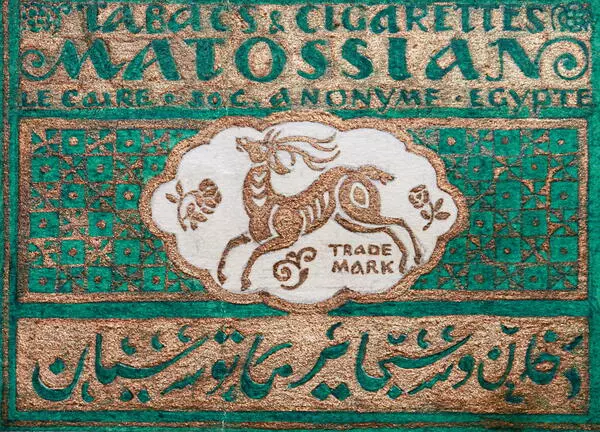 TABACS & CIGARETTES
MATOSSIAN
LE CAIRE • SOC. ANONYME • EGYPTE
TRADE
MARK
دخان وسجاير ماتوسيان